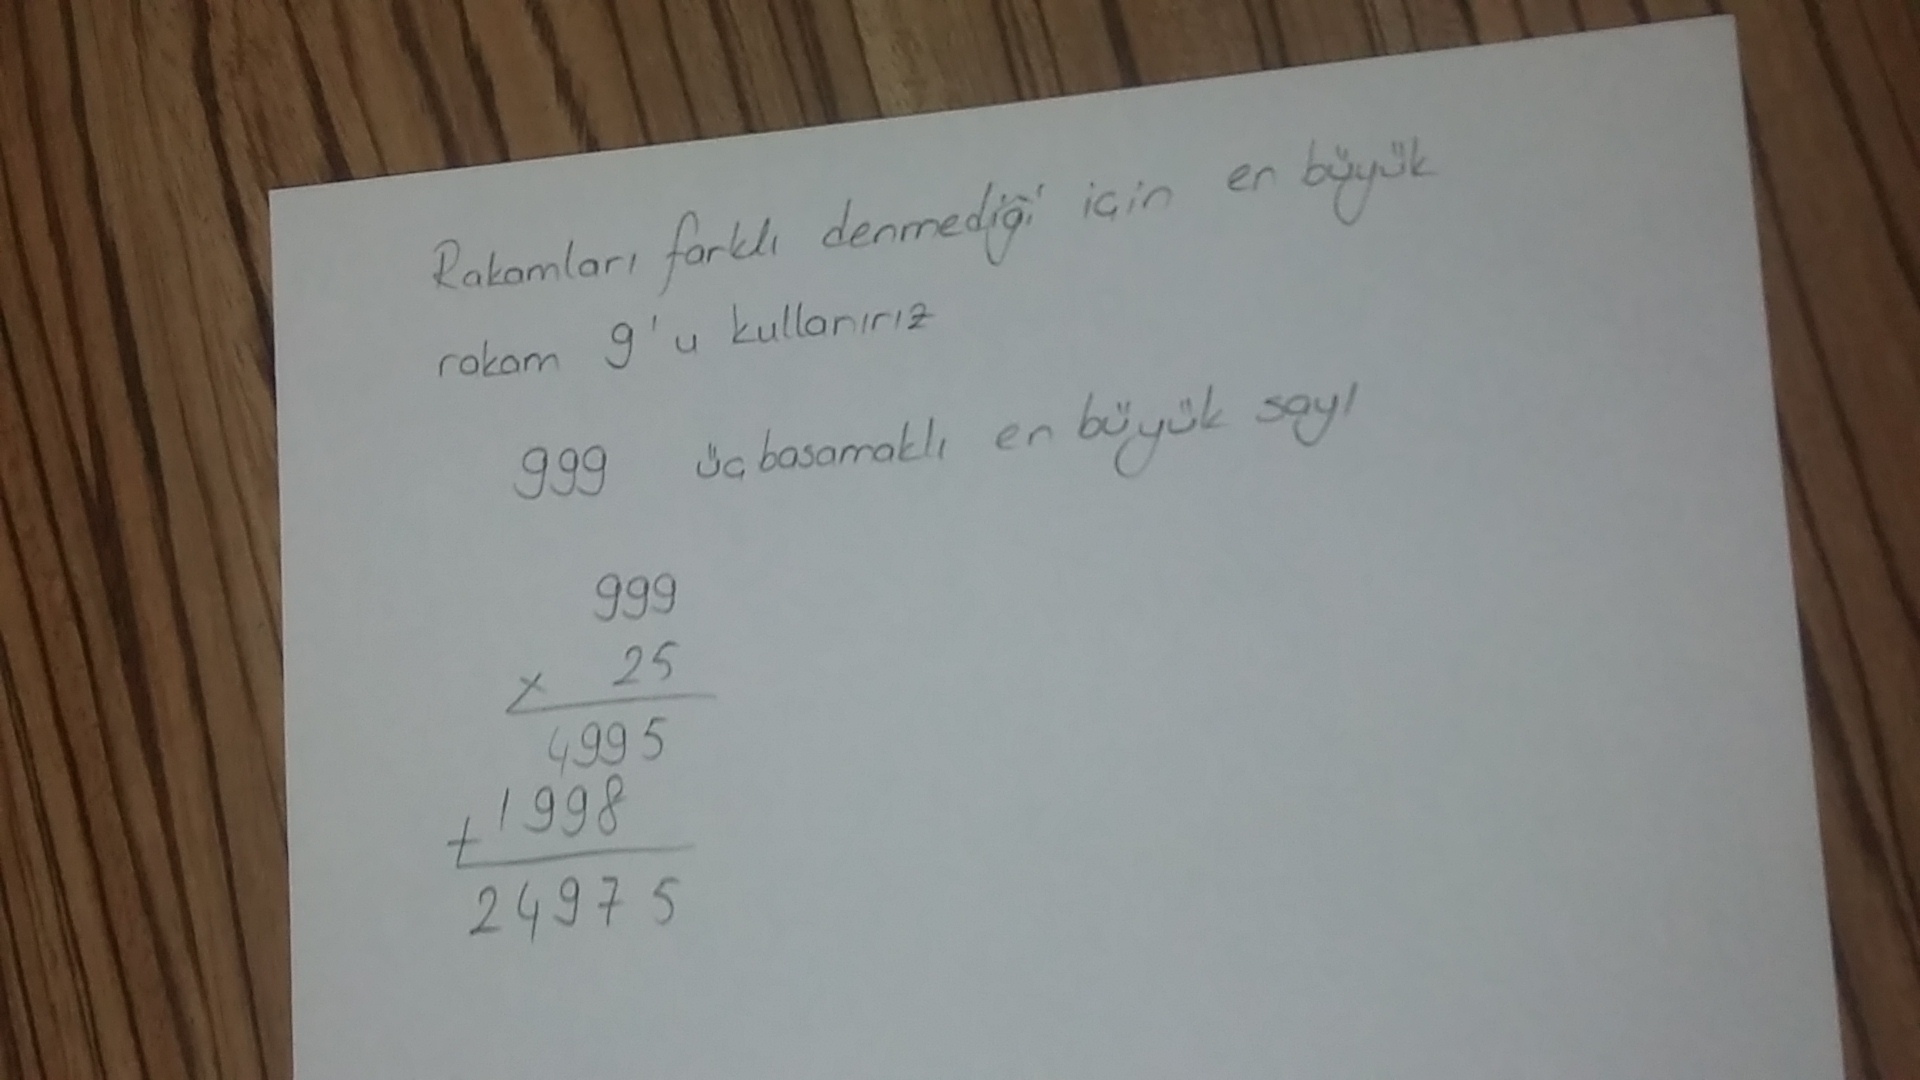 Rakamları farklı denmediği için en büyük
rakam 9'u kullanırız
999 üç basamaklı en büyük sayı
999
x 25
4995
+1998
24975